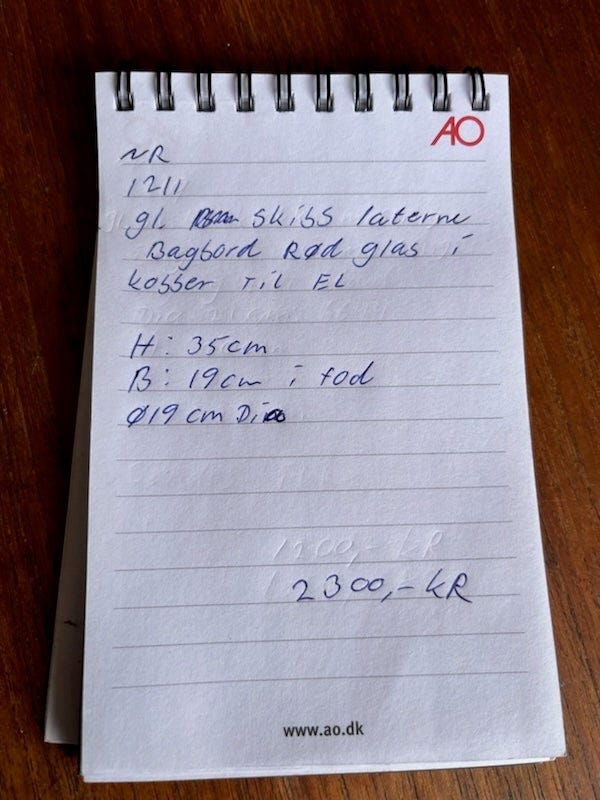 AO
NR
1211
gl. skibs laterne
Bagbord Rød glas i
kobber Til EL
H: 35cm
B: 19cm i fod
Ø19 cm Dia
2300,- kR
www.ao.dk